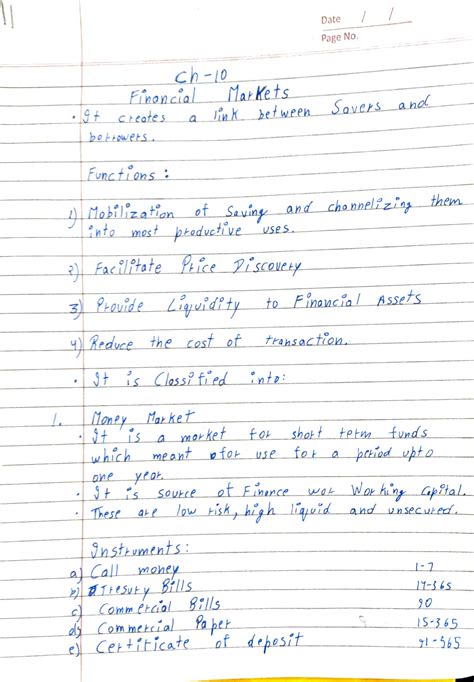 Date / /
Page No.
Ch-10
Financial Markets
· It creates a link between Savers and
borrowers.
Functions :
1) Mobilization of Saving and channelizing them
into most productive uses.
2) Facilitate Price Discovery
3) Provide Liquidity to Financial Assets
4) Reduce the cost of transaction.
· It is Classified into:
1. Money Market
· It is a market for short term funds
which meant for use for a period upto
one year.
· It is source of Finance wor Working Capital.
· These are low risk, high liquid and unsecured.
Instruments :
a) Call money 1-7
b) Tresury Bills 14-365
c) Commercial Bills 90
d) Commercial Paper 15-365
e) Certificate of deposit 91-365